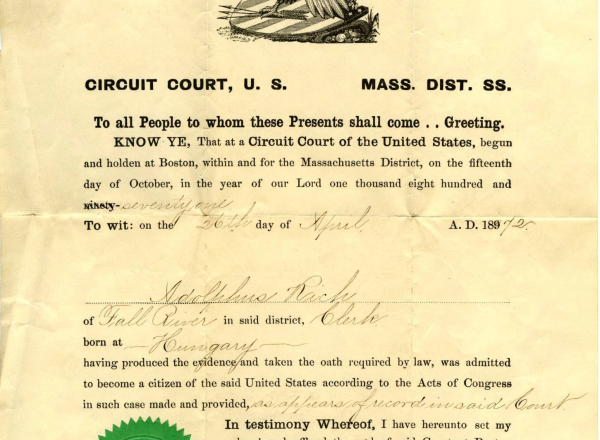 CIRCUIT COURT, U. S. MASS. DIST. SS.
To all People to whom these Presents shall come . . Greeting.
KNOW YE, That at a Circuit Court of the United States, begun
and holden at Boston, within and for the Massachusetts District, on the fifteenth
day of October, in the year of our Lord one thousand eight hundred and
ninety- seventy one
To wit: on the 26th day of April A. D. 18972.
Adolphus Rich
of Fall River in said district, Clerk
born at Hungary
having produced the evidence and taken the oath required by law, was admitted
to become a citizen of the said United States according to the Acts of Congress
in such case made and provided, as appears of record in said Court.
In testimony Whereof, I have hereunto set my